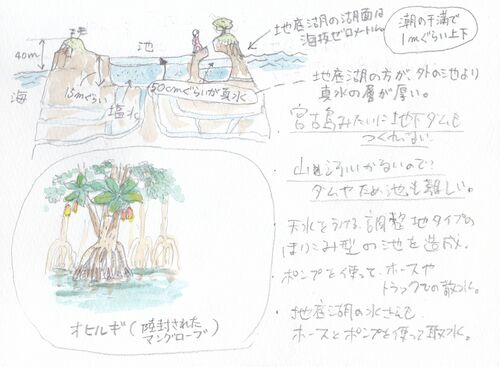 40m
池
海
15mぐらい
塩水
50cmぐらいが真水
地底湖の湖面は
海抜ゼロメートル。
潮の干満で
1mぐらい上下
地底湖の方が、外の池より
真水の層が厚い。
・宮古島みたいに地下ダムも
つくれない
・山も河川がないので
ダムやため池も難しい。
・天水をうける調整池タイプの
ほりこみ型の池を造成。
・ポンプを使って、ホースや
トラックでの散水。
・地底湖の水さえも
ホースとポンプを使って取水。
オヒルギ(陸封された
マングローブ)